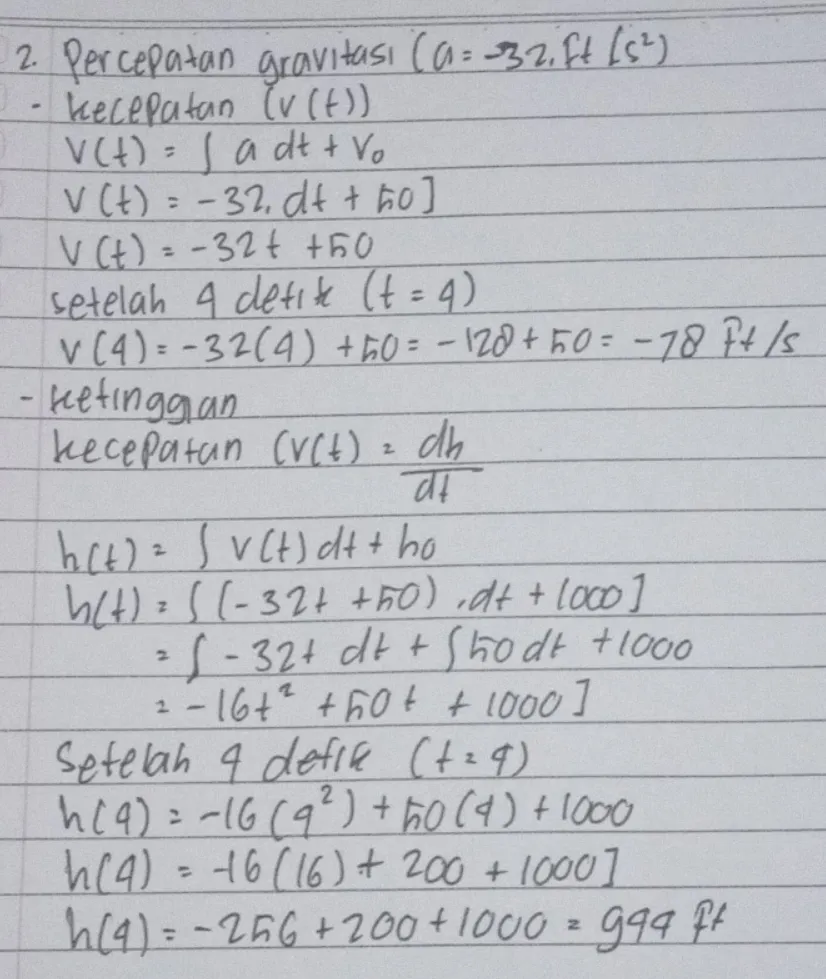 2. Percepatan gravitasi (a = -32. ft/s²)
- kecepatan (v(t))
v(t) = ∫ a dt + v₀
v(t) = -32. dt + 50]
v(t) = -32t + 50
setelah 4 detik (t = 4)
v(4) = -32(4) + 50 = -128 + 50 = -78 ft/s
- ketinggian
kecepatan (v(t) = dh/dt
h(t) = ∫ v(t) dt + h0
h(t) = ∫ (-32t + 50) .dt + 1000]
= ∫ -32t dt + ∫ 50 dt + 1000
= -16t² + 50t + 1000]
Setelah 4 detik (t = 4)
h(4) = -16(4²) + 50(4) + 1000
h(4) = -16(16) + 200 + 1000]
h(4) = -256 + 200 + 1000 = 944 ft